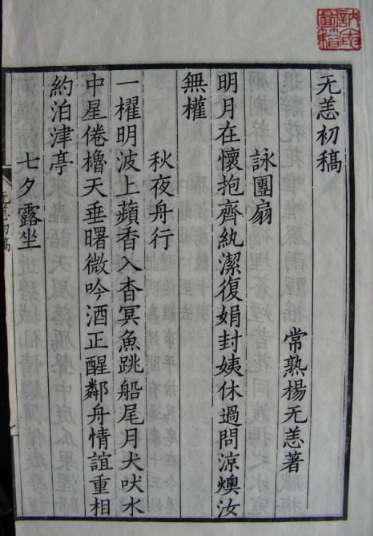 无恙初稿
常熟楊无恙著
詠團扇
明月在懷抱齊紈潔復娟封姨休過問涼燠汝
無權
秋夜舟行
一櫂明波上蘋香入杳冥魚跳船尾月犬吠水
中星倦櫓天垂曙微吟酒正醒鄰舟情誼重相
約泊津亭
七夕露坐
无恙初稿